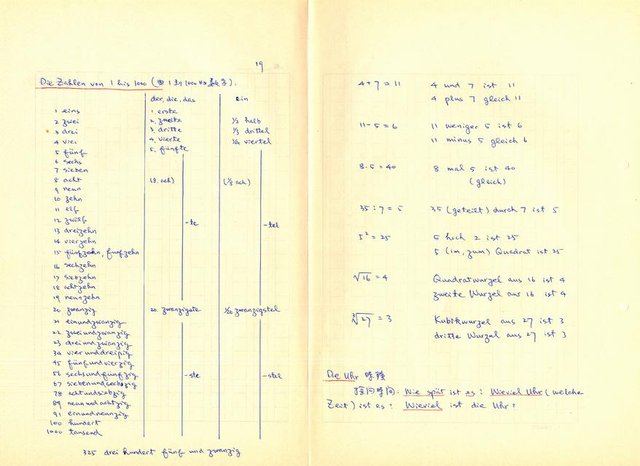 19
Die Zahlen von 1 bis 1000
der, die, das ein
1 eins 1. erste
2 zwei 2. zweite 1/2 halb
3 drei 3. dritte 1/3 drittel
4 vier 4. vierte 1/4 viertel
5 fünf 5. fünfte
6 sechs
7 sieben
8 acht (8. ach) (1/8 ach)
9 neun
10 zehn
11 elf
12 zwölf -te -tel
13 dreizehn
14 vierzehn
15 fünfzehn, funfzehn
16 sechzehn
17 siebzehn
18 achtzehn
19 neunzehn
20 zwanzig 20. zwanzigste 1/20 zwanzigstel
21 einundzwanzig
22 zweiundzwanzig
23 dreiundzwanzig
34 vierunddreißig
45 fünfundvierzig
56 sechsundfünfzig -ste -stel
67 siebenundsechzig
78 achtundsiebzig
89 neunundachtzig
91 einundneunzig
100 hundert
1000 tausend
325 drei hundert fünf und zwanzig
4+7=11 4 und 7 ist 11
4 plus 7 gleich 11
11-5=6 11 weniger 5 ist 6
11 minus 5 gleich 6
8·5=40 8 mal 5 ist 40
(gleich)
35:7=5 35 (geteilt) durch 7 ist 5
5²=25 5 hoch 2 ist 25
5 (im, zum) Quadrat ist 25
√16=4 Quadratwurzel aus 16 ist 4
zweite Wurzel aus 16 ist 4
∛27=3 Kubikwurzel aus 27 ist 3
dritte Wurzel aus 27 ist 3
Die Uhr 時鐘
詢問時間: Wie spät ist es? Wieviel Uhr (welche
Zeit) ist es? Wieviel ist die Uhr?